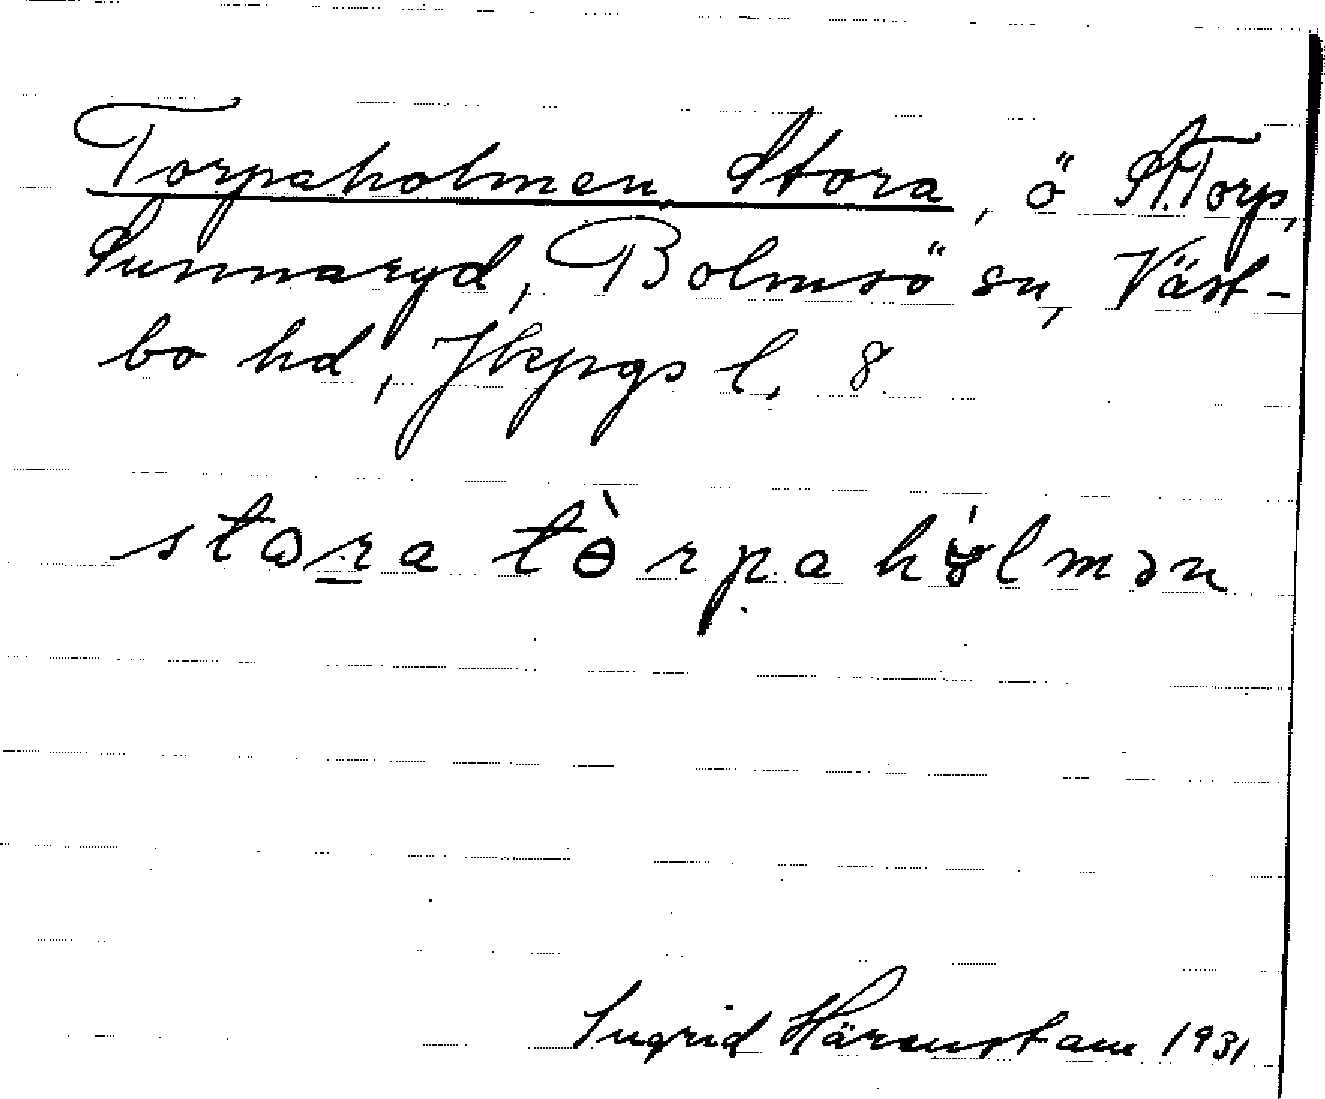 Torpaholmen Stora, ö St.Torp,
Sunnaryd, Bolmsö sn, Väst-
bo hd, Jkpgs l. 8.
stora tɵ̀rpa hɵ́lmən
Ingrid Härenstam 1931